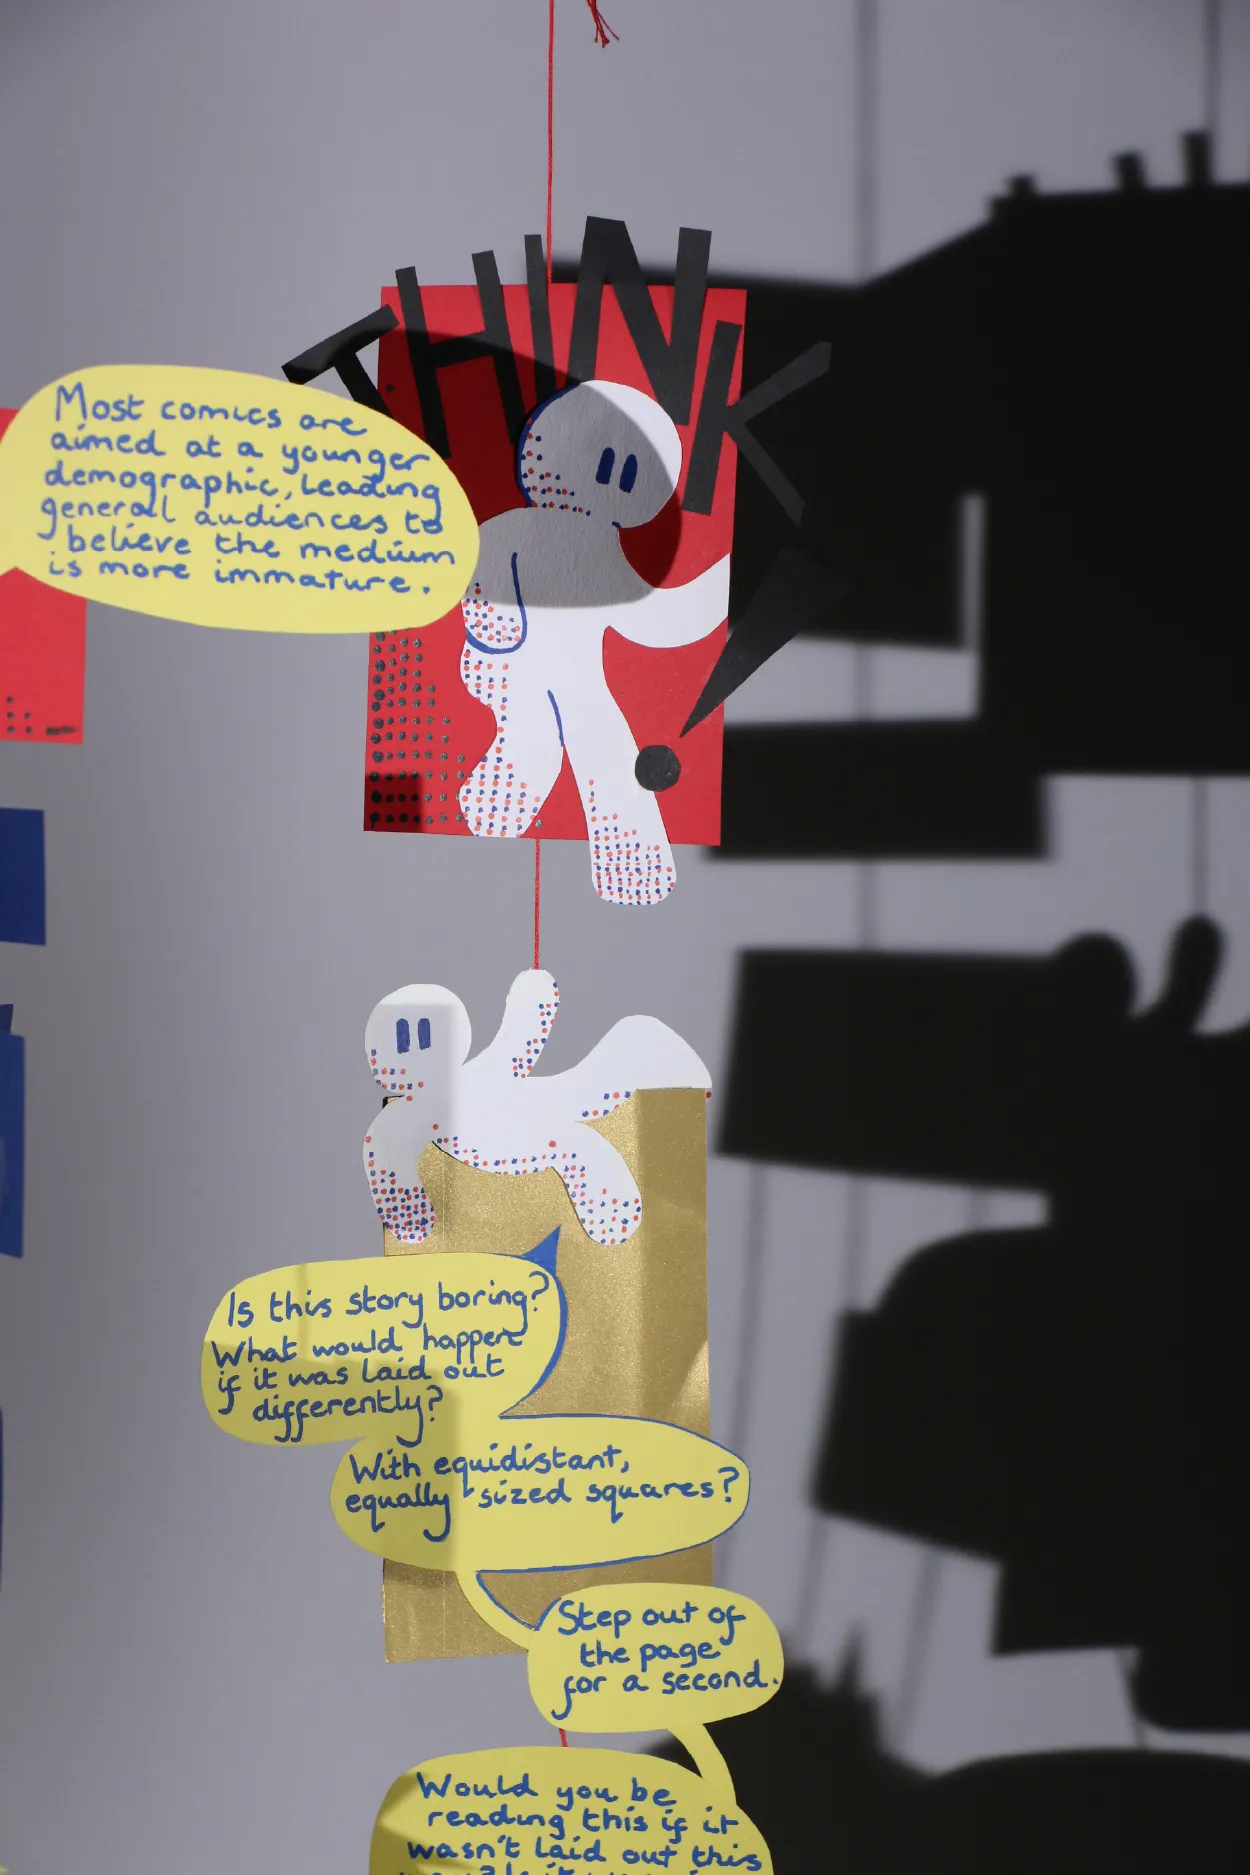 THINK!
Most comics are
aimed at a younger
demographic, leading
general audiences to
believe the medium
is more immature.
Is this story boring?
What would happen
if it was laid out
differently?
With equidistant,
equally sized squares?
Step out of
the page
for a second.
Would you be
reading this if it
wasn't laid out this